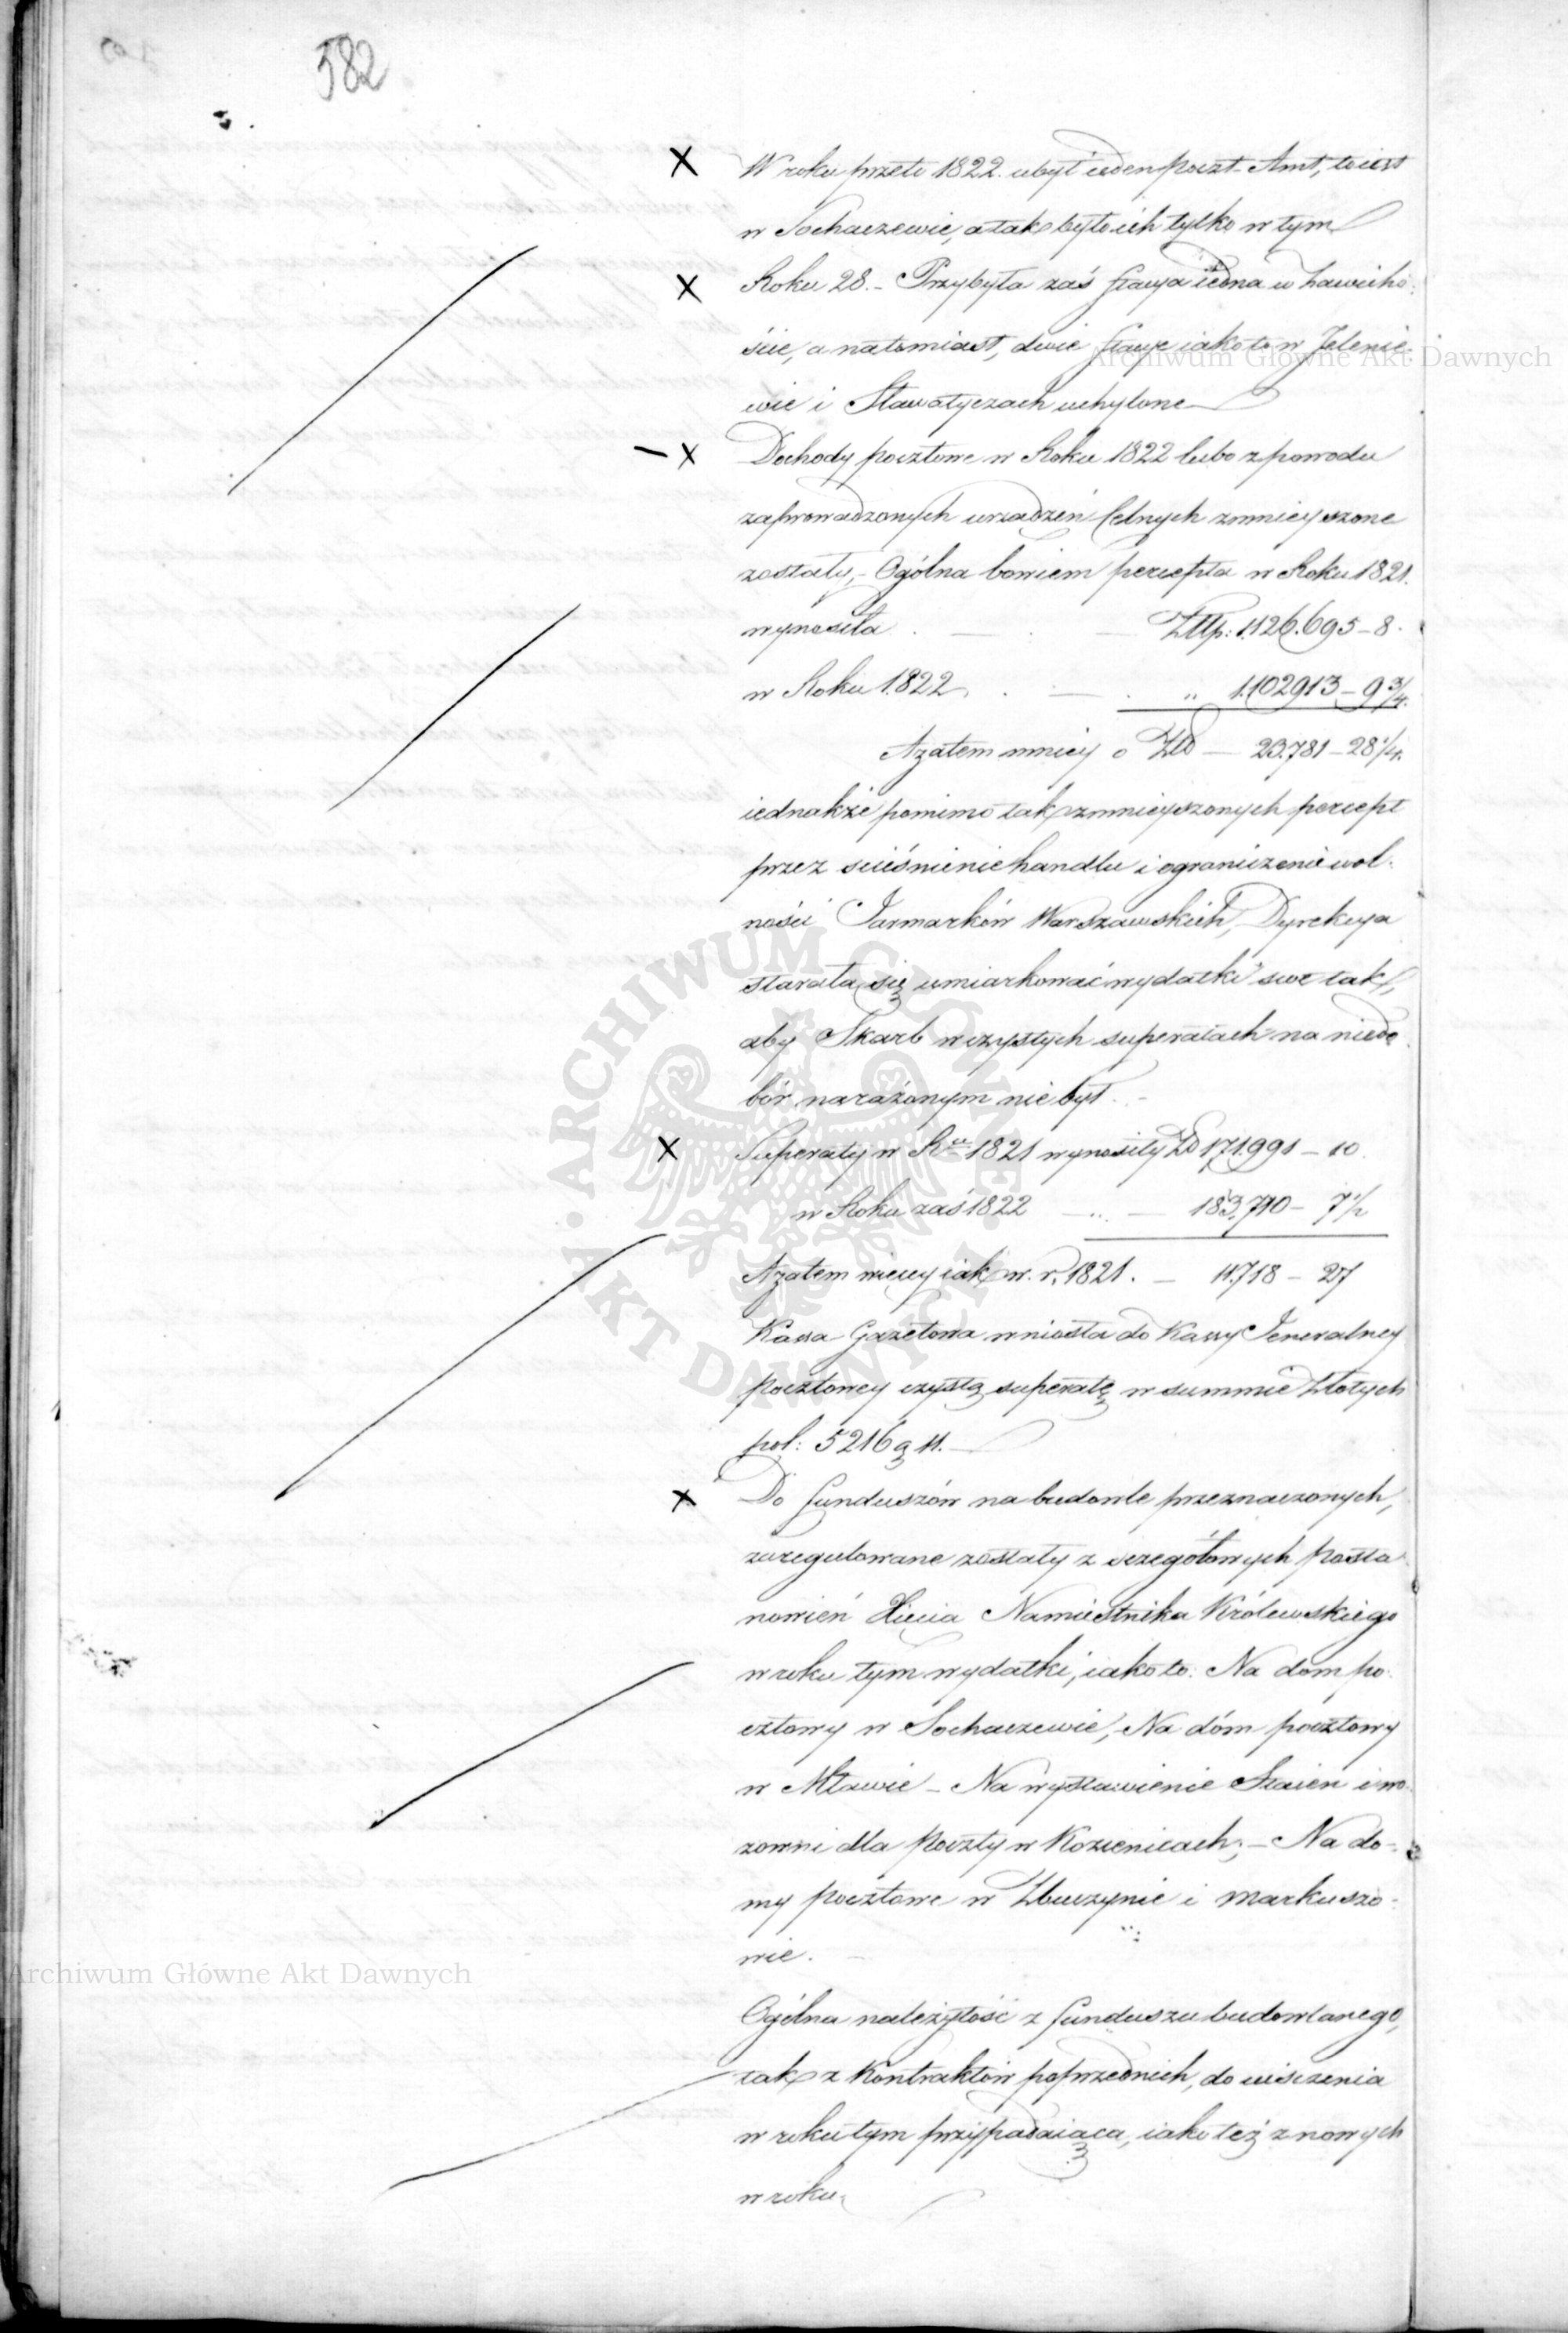 582
W roku przeto 1822. ubył ieden poczt-Amt, to iest
w Sochaczewie, a tak było ich tylko w tym
Roku 28. - Przybyła zaś stacya iedna w Zawicho-
ście, a natomiast, dwie stacye iako to w Jelenie-
wie i Sławatyczach uchylone
Dochody pocztowe w Roku 1822 lubo z powodu
zaprowadzonych urządzeń Celnych zmnieyszone
zostały, - Ogólna bowiem percepta w Roku 1821.
wynosiła . — . — Złłp: 1.126.695 - 8.
w Roku 1822. . — . „ 1.102913 - 9 3/4.
A zatem mniey o Zł — 23.781 - 28 1/4.
iednakże pomimo tak zmnieyszonych percept
przez sciśnienie handlu i ograniczenie wol-
ności Jarmarków Warszawskich, Dyrekcya
starała się umiarkować wydatki swe tak,
aby Skarb w czystych superatach na niedo-
bór narażonym nie był. -
Superaty w Rku 1821 wynosiły Zł 171.991 - 10.
w Roku zaś 1822 — „ — 183,710 - 7 1/2
A zatem więcey iak w r. 1821. — 11.718 - 27
Kassa Gazetowa wniosła do Kassy Jeneralney
pocztowey czystą superatę w summie Złotych
pol: 5216 g 11. —
Do funduszów na budowle przeznaczonych,
zaregulowane zostały z sczegółowych Posta-
nowień Xięcia Namiestnika Królewskiego
w roku tym wydatki, iako to: Na dom po-
cztowy w Sochaczewie, Na dóm pocztowy
w Mławie - Na wystawienie Staien i wo-
zowni dla Poczty w Kozienicach; - Na do-
my pocztowe w Zbuczynie i Markuszo-
wie. —
Ogólna należytość z funduszu budowlanego,
tak z Kontraktów poprzednich, do uiszczenia
w roku tym przypadaiąca, iako też z nowych
w roku
Archiwum Główne Akt Dawnych
Archiwum Główne Akt Dawnych
ARCHIWUM GŁÓWNE • AKT DAWNYCH •